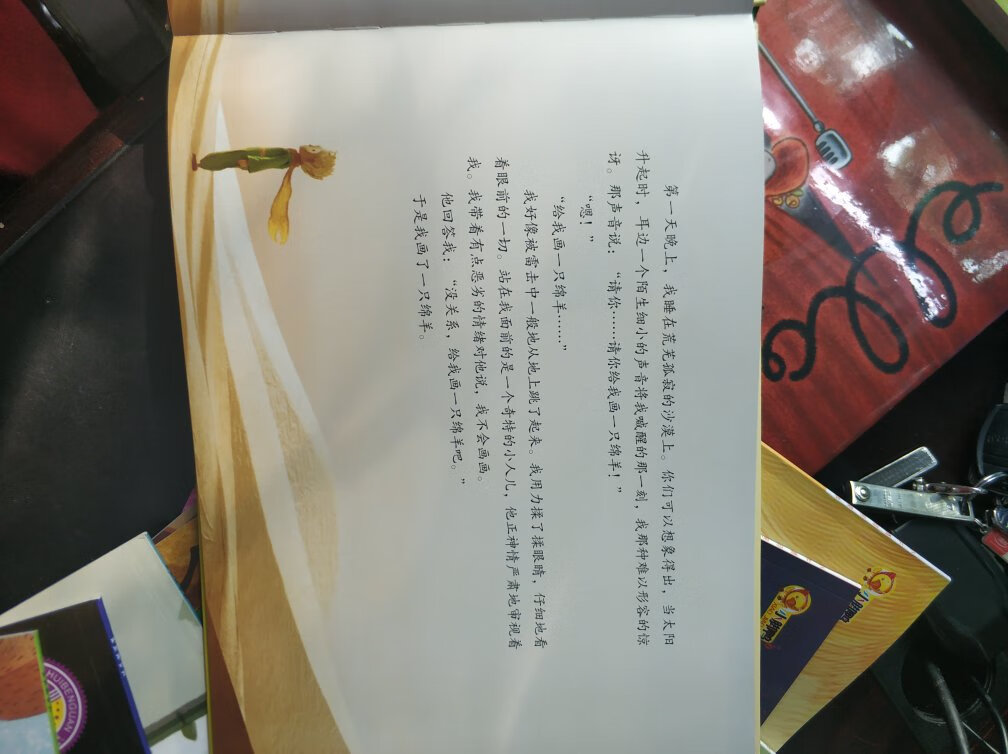 第一天晚上，我睡在荒芜孤寂的沙漠上。你们可以想象得出，当太阳
升起时，耳边一个陌生细小的声音将我喊醒的那一刻，我那种难以形容的惊
讶。那声音说：“请你……请你给我画一只绵羊！”
“嗯！”
“给我画一只绵羊……”
我好像被雷击中一般地从地上跳了起来。我用力揉了揉眼睛，仔细地看
着眼前的一切。站在我面前的是一个奇特的小人儿，他正神情严肃地审视着
我。我带着有点恶劣的情绪对他说，我不会画画。
他回答我：“没关系，给我画一只绵羊吧。”
于是我画了一只绵羊。
HUIBENGUAN